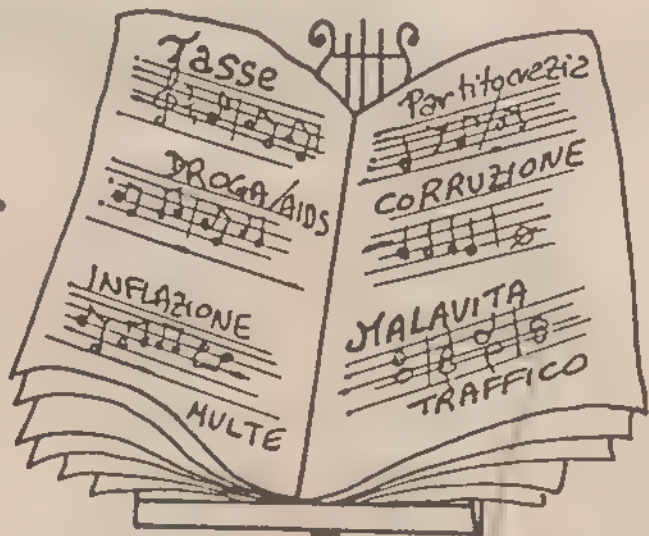 Tasse
DROGA/AIDS
INFLAZIONE
MULTE
Partitocrazia
CORRUZIONE
MALAVITA
TRAFFICO